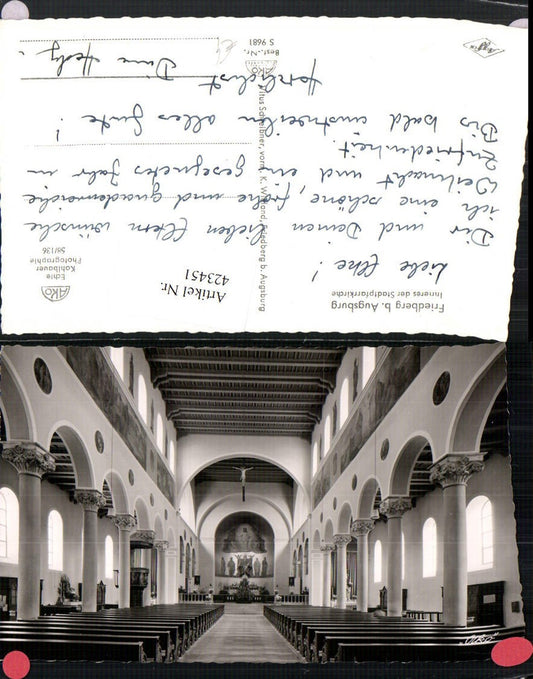 Friedberg b. Augsburg
Inneres der Stadtpfarrkirche
Liebe Elke!
Dir und Deinen lieben Eltern wünsche
ich eine schöne, frohe und gnadenreiche
Weihnacht und ein gesegnetes Jahr in
Zufriedenheit.
Bis bald einstweilen alles Gute!
Herzlichst
Deine
Artikel Nr.
423451
AKO
Echte
Kohlbauer
Photographie
58/136
Friedberg b. Augsburg
AKO
Best.-Nr.
S 9681
Agfa